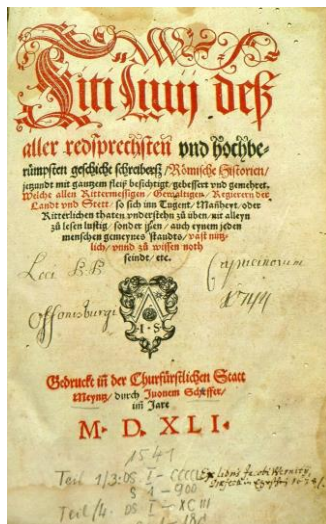 Titi Liuij deß
aller redsprechsten vnd hochbe-
rümpsten geschicht schreibersz / Römische Historien /
jetzundt mit gantzem fleiß besichtigt / gebessert vnd gemehret.
Welche allen Rittermessigen / Gewaltigen / Regierern der
Landt vnd Stett / so sich inn Tugent / Mañheyt / oder
Ritterlichen thaten vnderstehn zů üben / nit alleyn
zů lesen lustig / sonder jnen / auch eynem jeden
menschen gemeynes standts / vast nutz-
lich / vnnd zů wissen noth
seindt / etc.
Loci
Capucinorum
Offonisburgi
1744
I · S
Gedruckt in der Churfürstlichen Statt
Meyntz / durch Juonem Schöffer /
im Jare
M· D. XLI.
1541
Teil 1/3: DS I - CCCC
S 1 - 900
Teil 4: DS I - XCIII